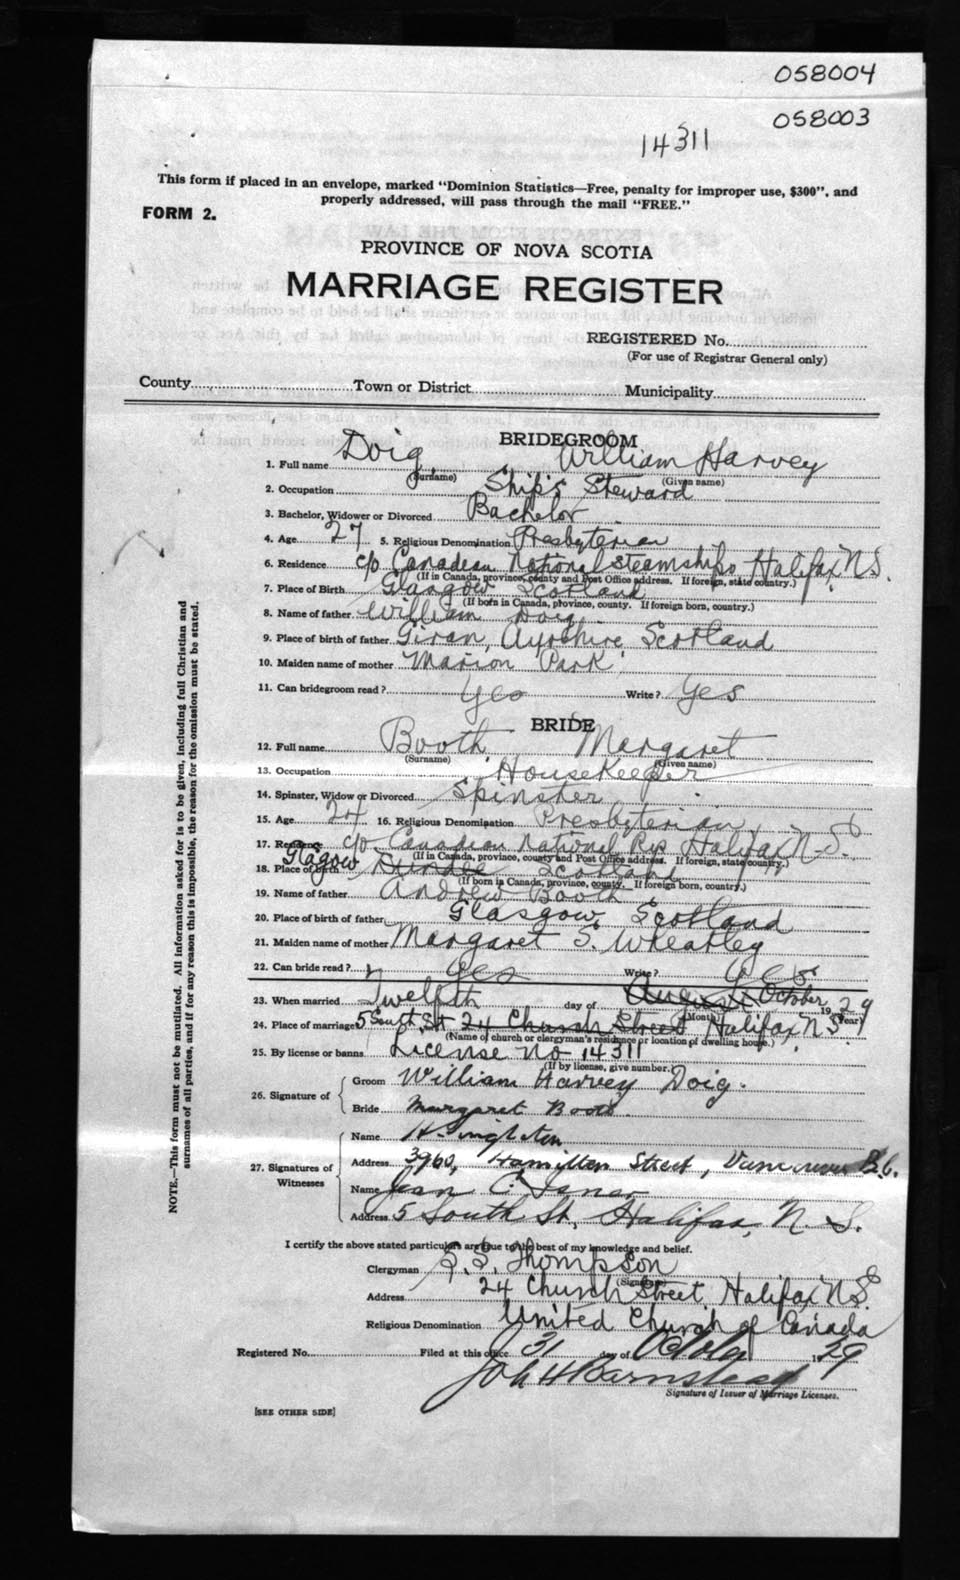 058004
058003
14311
This form if placed in an envelope, marked "Dominion Statistics—Free, penalty for improper use, $300", and
properly addressed, will pass through the mail "FREE."
FORM 2.
PROVINCE OF NOVA SCOTIA
MARRIAGE REGISTER
REGISTERED No.
(For use of Registrar General only)
County Town or District Municipality
BRIDEGROOM
1. Full name Doig William Harvey
(Surname) (Given name)
2. Occupation Ship's Steward
3. Bachelor, Widower or Divorced Bachelor
4. Age 27 5. Religious Denomination Presbyterian
6. Residence c/o Canadian National Steamships Halifax N.S.
(If in Canada, province, county and Post Office address. If foreign, state country.)
7. Place of Birth Glasgow Scotland
(If born in Canada, province, county. If foreign born, country.)
8. Name of father William Doig
9. Place of birth of father Girvan, Ayrshire Scotland
10. Maiden name of mother Marion Park
11. Can bridegroom read? Yes Write? Yes
BRIDE
12. Full name Booth Margaret
(Surname) (Given name)
13. Occupation Housekeeper
14. Spinster, Widow or Divorced Spinster
15. Age 24 16. Religious Denomination Presbyterian
17. Residence c/o Canadian National Rys Halifax N.S.
(If in Canada, province, county and Post Office address. If foreign, state country.)
18. Place of birth Glagow Dundee Scotland
(If born in Canada, province, county. If foreign born, country.)
19. Name of father Andrew Booth
20. Place of birth of father Glasgow, Scotland
21. Maiden name of mother Margaret S. Wheatley
22. Can bride read? Yes Write? Yes
23. When married Twelfth day of August October 1929
(Month) (Year)
24. Place of marriage 5 South St 24 Church Street Halifax N.S.
(Name of church or clergyman's residence or location of dwelling house.)
25. By license or banns License no 14311
(If by license, give number.)
26. Signature of
Groom William Harvey Doig.
Bride Margaret Booth
27. Signatures of
Witnesses
Name
Address 3960, Hamilton Street, Vancouver B.C.
Name Jean C.
Address 5 South St, Halifax, N. S.
I certify the above stated particulars are true to the best of my knowledge and belief.
Clergyman S. S. Thompson
(Signature)
Address 24 Church Street Halifax N.S.
Religious Denomination United Church of Canada
Registered No. Filed at this office 31 day of October 1929
Signature of Issuer of Marriage Licenses.
[SEE OTHER SIDE]
NOTE.—This form must not be mutilated. All information asked for is to be given, including full Christian and
surnames of all parties, and if for any reason this is impossible, the reason for the omission must be stated.